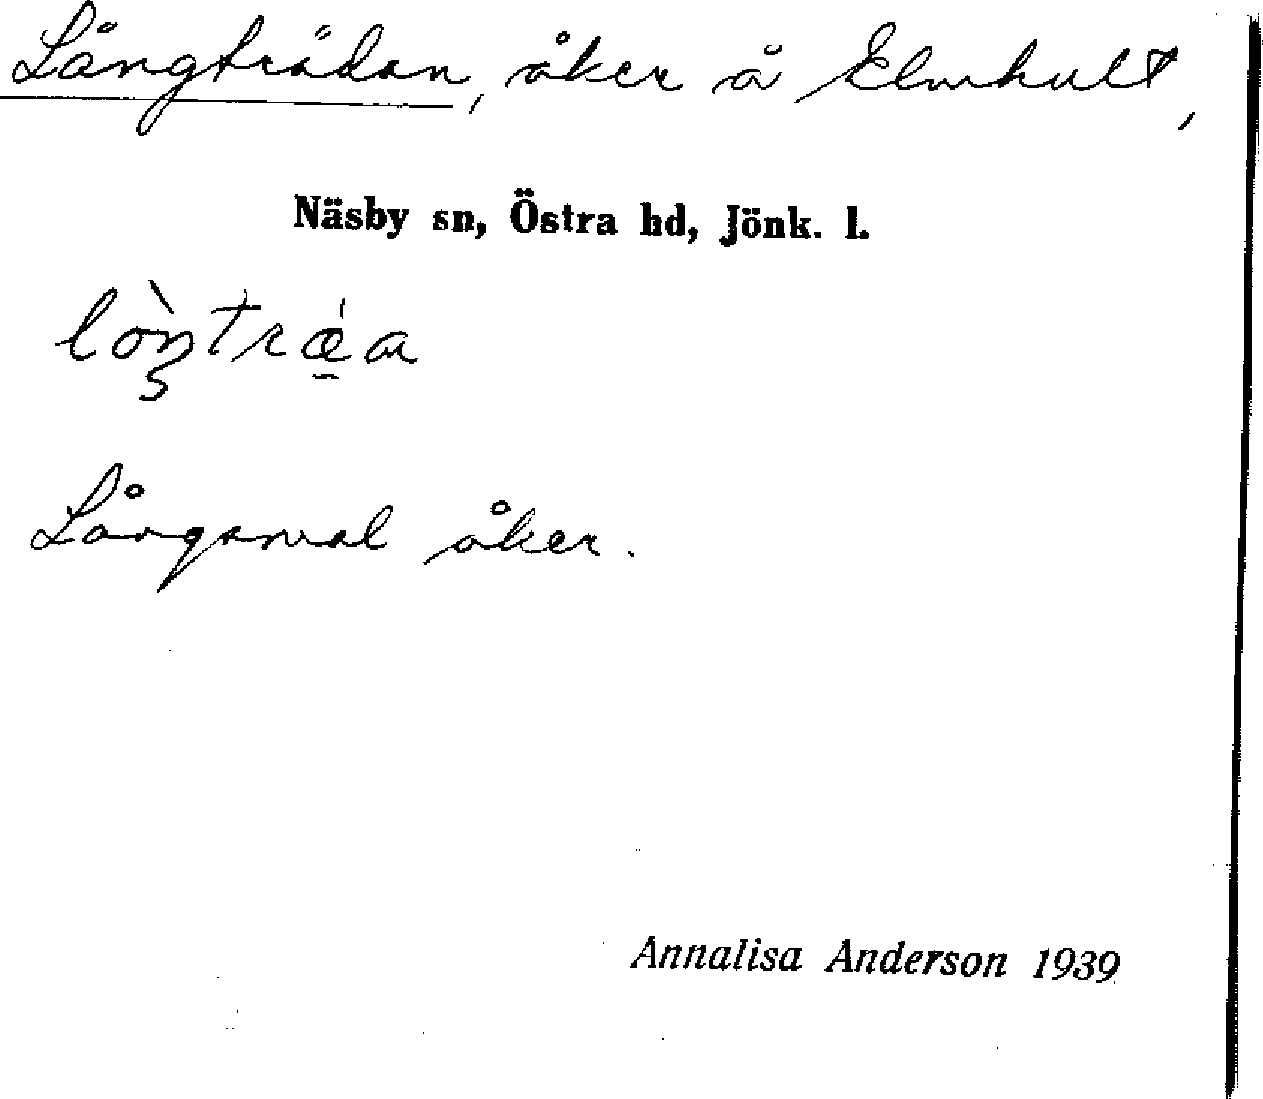 Långträdan, åker å Elmhult,
Näsby sn, Östra hd, Jönk. l.
lòŋtrǽ̱a
Långsmal åker.
Annalisa Anderson 1939